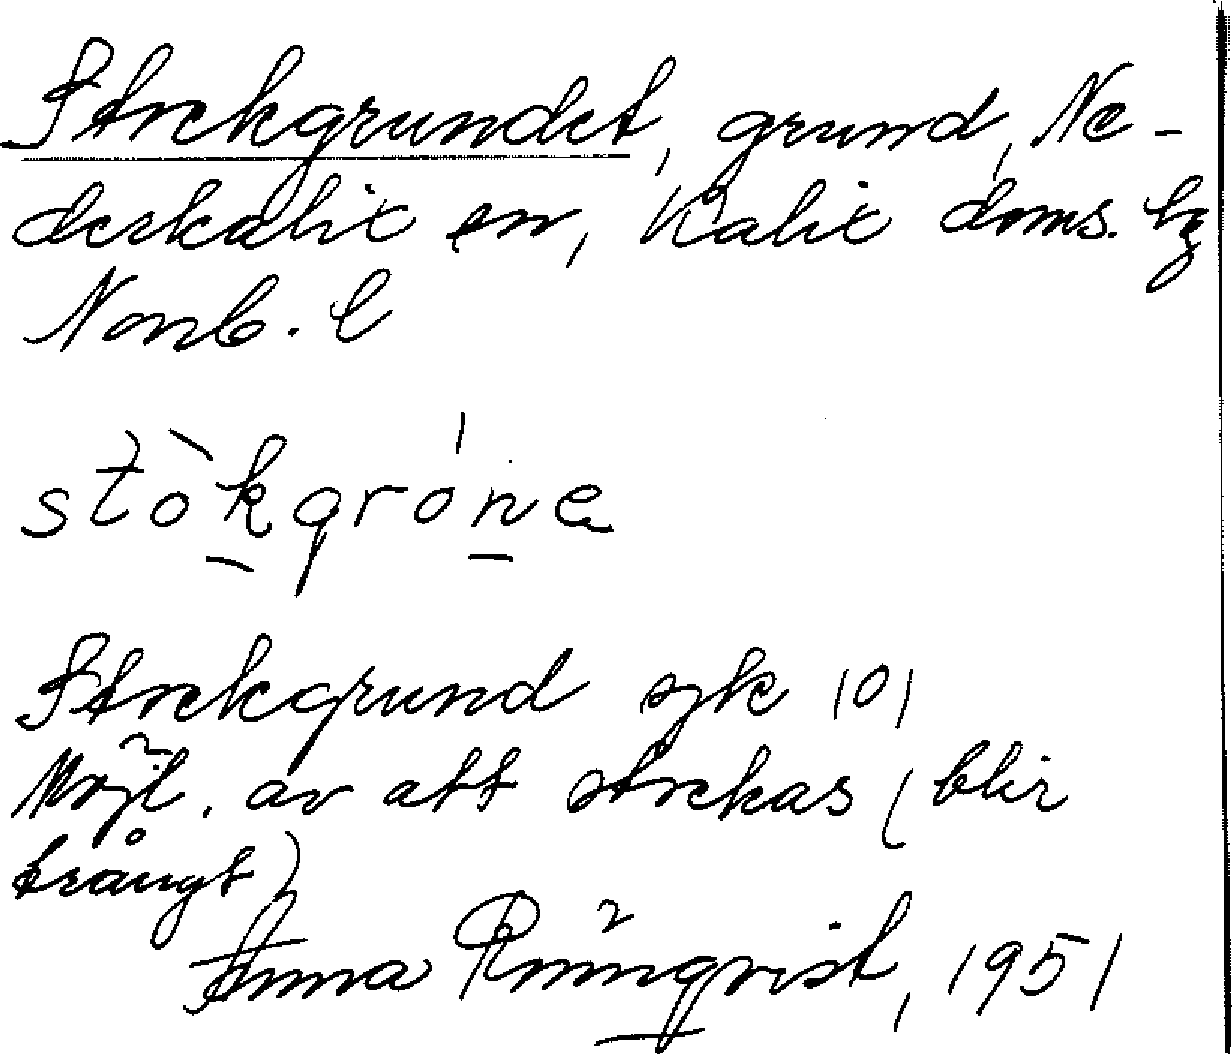 Stockgrundet, grund, Ne-
derkalix sn, Kalix doms. hg
Norrb. l
stòkgróne
Stockgrund sjk 101
Möjl. av att stockas (blir
trångt)
Anna Rönnqvist, 1951